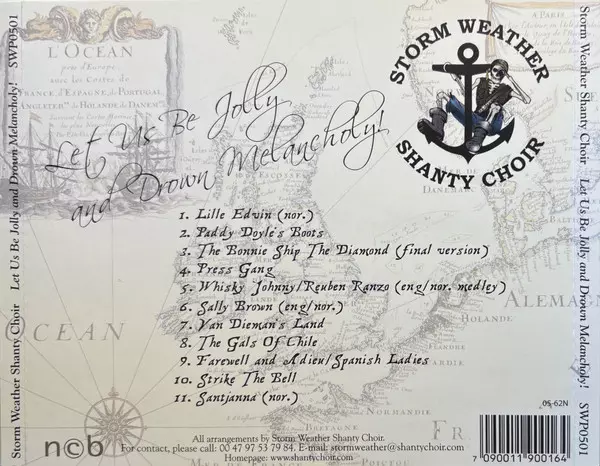 Storm Weather Shanty Choir Let Us Be Jolly and Drown Melancholy! SWP0501
L'OCEAN
près d'Europe
avec les Costes de
FRANCE D'ESPAGNE, de PORTUGAL
D'ANGLETER.re de HOLANDE, de DANEM.rc
STORM WEATHER
SHANTY CHOIR
Let Us Be Jolly
and Drown Melancholy!
1. Lille Edvin (nor.)
2. Paddy Doyle's Boots
3. The Bonnie Ship The Diamond (final version)
4. Press Gang
5. Whisky Johnny/Reuben Ranzo (eng/nor. medley)
6. Sally Brown (eng/nor.)
7. Van Dieman's Land
8. The Gals Of Chile
9. Farewell and Adieu/Spanish Ladies
10. Strike The Bell
11. Santjanna (nor.)
A PARIS
MER DE
DANEMARC
ALEMAG
HOLANDE
OCEAN
FR
BRETAGNE
05-62N
n©b
All arrangements by Storm Weather Shanty Choir.
For contact, please call: 00 47 97 53 79 84, E-mail: stormweather@shantychoir.com
Homepage: www.shantychoir.com
7 090011 900164
Storm Weather Shanty Choir Let Us Be Jolly and Drown Melancholy! SWP0501